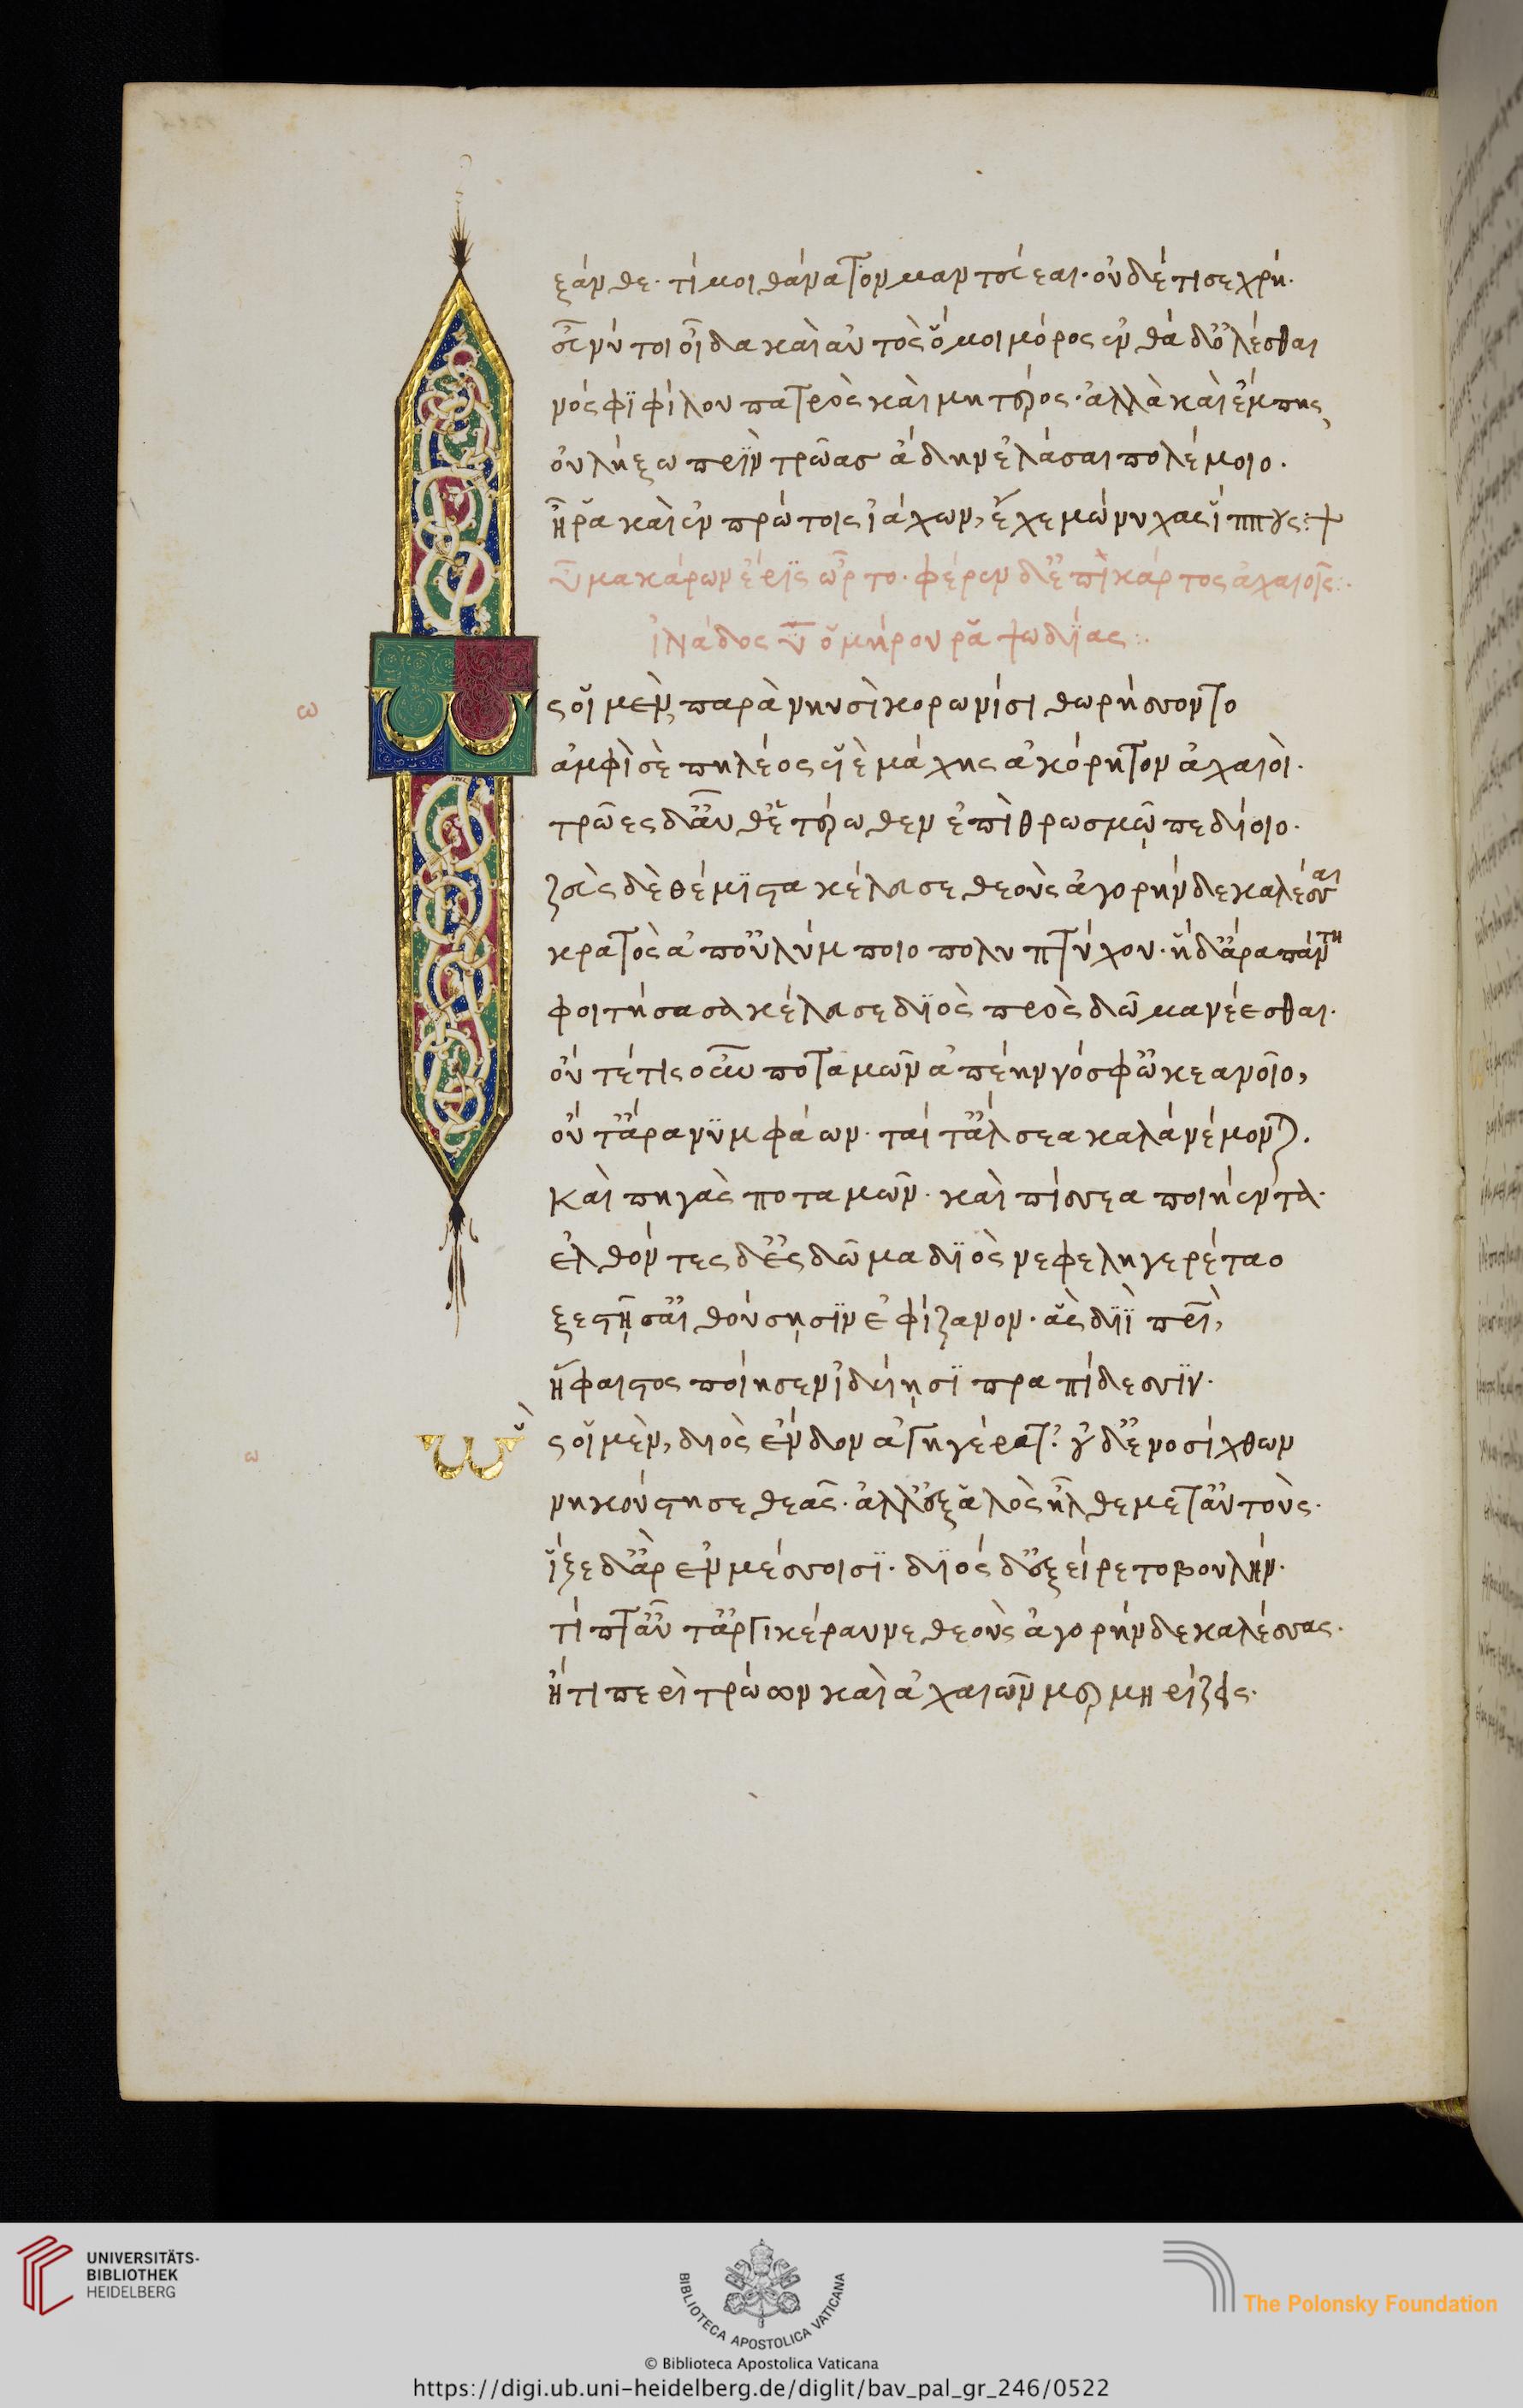 ξάνθε· τί μοι θάνατον μαντεύεαι· οὐδέ τί σε χρή·
εὖ νύ τοι οἶδα καὶ αὐτὸς ὅ μοι μόρος ἐνθάδ' ὀλέσθαι
νόσφϊ φίλου πατρὸς καὶ μητρός· ἀλλὰ καὶ ἔμπης
οὐ λήξω πρὶν τρῶας ἄδην ἐλάσαι πολέμοιο.
ἦ ῥα καὶ ἐν πρώτοις ἰάχων, ἔχε μώνυχας ἵππους:+
ϋ μακάρων ἔρϊς ὦρτο· φέρεν δ' ἐπὶ κάρτος ἀχαιοῖς:.
ἰλιάδος ϋ ὁμήρου ῥαψωδίας:.
ω
ς οἳ μὲν παρὰ νηυσὶ κορωνίσι θωρήσσοντο
ἀμφὶ σὲ πηλέος υἱὲ μάχης ἀκόρητον ἀχαιοί.
τρῶες δ' αὖθ' ἑτέρωθεν ἐπὶ θρωσμῷ πεδίοιο.
ζεὺς δὲ θέμϊστα κέλευσε θεοὺς ἀγορήνδε καλέσσαι
κρατὸς ἀπ' οὐλύμποιο πολυπτύχου· ἡ δ' ἄρα πάντη
φοιτήσασα κέλευσε διὸς πρὸς δῶμα νέεσθαι.
οὔτέ τις οὖν ποταμῶν ἀπέην νόσφ' ὠκεανοῖο,
οὔτ' ἄρα νϋμφάων· ταί τ' ἄλσεα καλὰ νέμονται.
καὶ πηγὰς ποταμῶν· καὶ πίσσεα ποιήεντα.
ἐλθόντες δ' ἐς δῶμα διὸς νεφεληγερέταο
ξεστῇς αἰθούσῃσϊν ἐφίζανον· ἃς διῒ πατρὶ,
ἥφαιστος ποίησεν ἰδυίῃσϊ πραπίδεσσϊν.
ω
ὣς οἳ μὲν, διὸς ἔνδον ἀγηγέρατ'· οὐδ' ἐνοσίχθων
νηκούστησε θεᾶς· ἀλλ' ἐξ ἁλὸς ἦλθε μετ' αὐτούς.
ἷζε δ' ἄρ ἐν μέσσοισϊ· διὸς δ' ἐξείρετο βουλήν.
τίπτ' αὖτ' ἀργικέραυνε θεοὺς ἀγορήνδε καλέσσας.
ἤ τι περὶ τρώων καὶ ἀχαιῶν μερμηρίζεις.
UNIVERSITÄTS-
BIBLIOTHEK
HEIDELBERG
BIBLIOTECA APOSTOLICA VATICANA
The Polonsky Foundation
© Biblioteca Apostolica Vaticana
https://digi.ub.uni-heidelberg.de/diglit/bav_pal_gr_246/0522